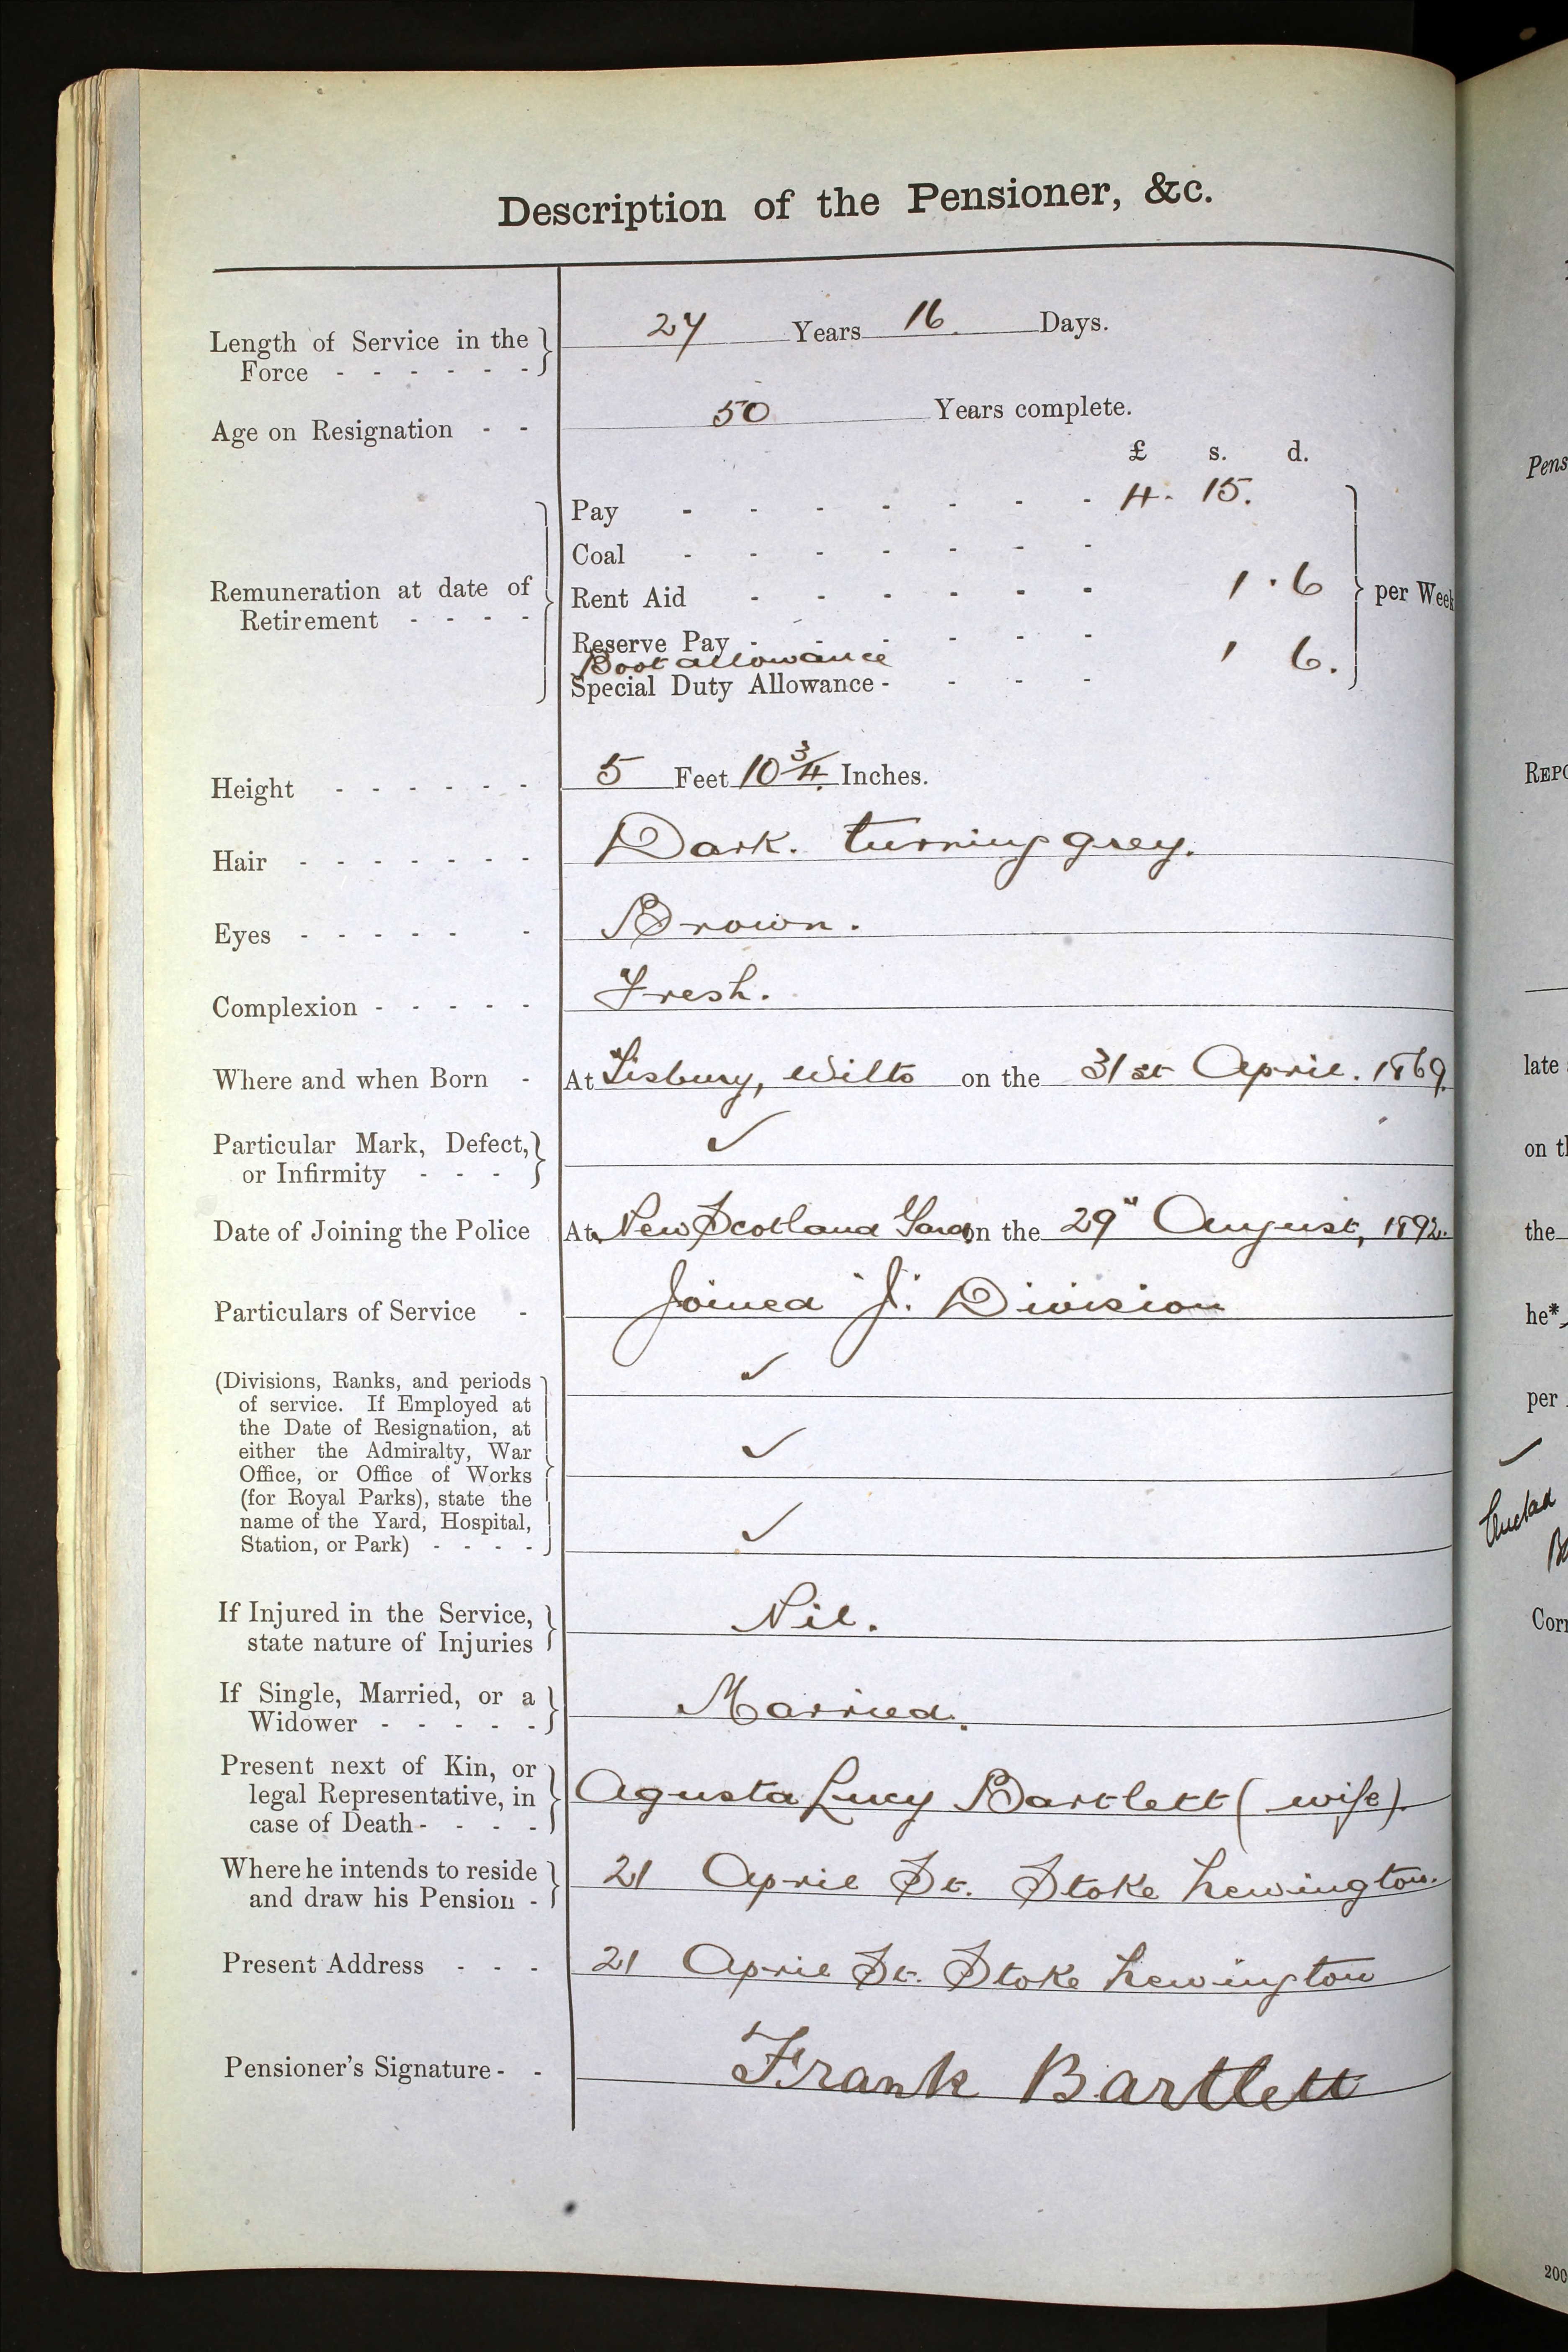 Description of the Pensioner, &c.
Length of Service in the Force - - - - - - 27 Years 16 Days.
Age on Resignation - - 50 Years complete.
£ s. d.
Remuneration at date of Retirement - - - -
Pay - - - - - - - 4. 15.
Coal - - - - - - -
Rent Aid - - - - - - 1 . 6 per Week
Reserve Pay - - - - - -
Boot allowance 1 6.
Special Duty Allowance - - - -
Height - - - - - - 5 Feet 10 3/4 Inches.
Hair - - - - - - - Dark. turning grey.
Eyes - - - - - - Brown.
Complexion - - - - - Fresh.
Where and when Born - At Tisbury, Wilts on the 31st April. 1869.
Particular Mark, Defect, or Infirmity - - - ✓
Date of Joining the Police At New Scotland Yard on the 29" August, 1892.
Particulars of Service - Joined "J". Division
(Divisions, Ranks, and periods
of service. If Employed at
the Date of Resignation, at
either the Admiralty, War
Office, or Office of Works
(for Royal Parks), state the
name of the Yard, Hospital,
Station, or Park) - - - -
✓
✓
✓
If Injured in the Service, state nature of Injuries Nil.
If Single, Married, or a Widower - - - - - Married.
Present next of Kin, or legal Representative, in case of Death - - - - Agusta Lucy Bartlett (wife).
Where he intends to reside and draw his Pension - 21 April St. Stoke Newington.
Present Address - - - 21 April St. Stoke Newington
Pensioner's Signature - - Frank Bartlett
Pens
REPO
late
on th
the
he*
per
✓
Corr
200